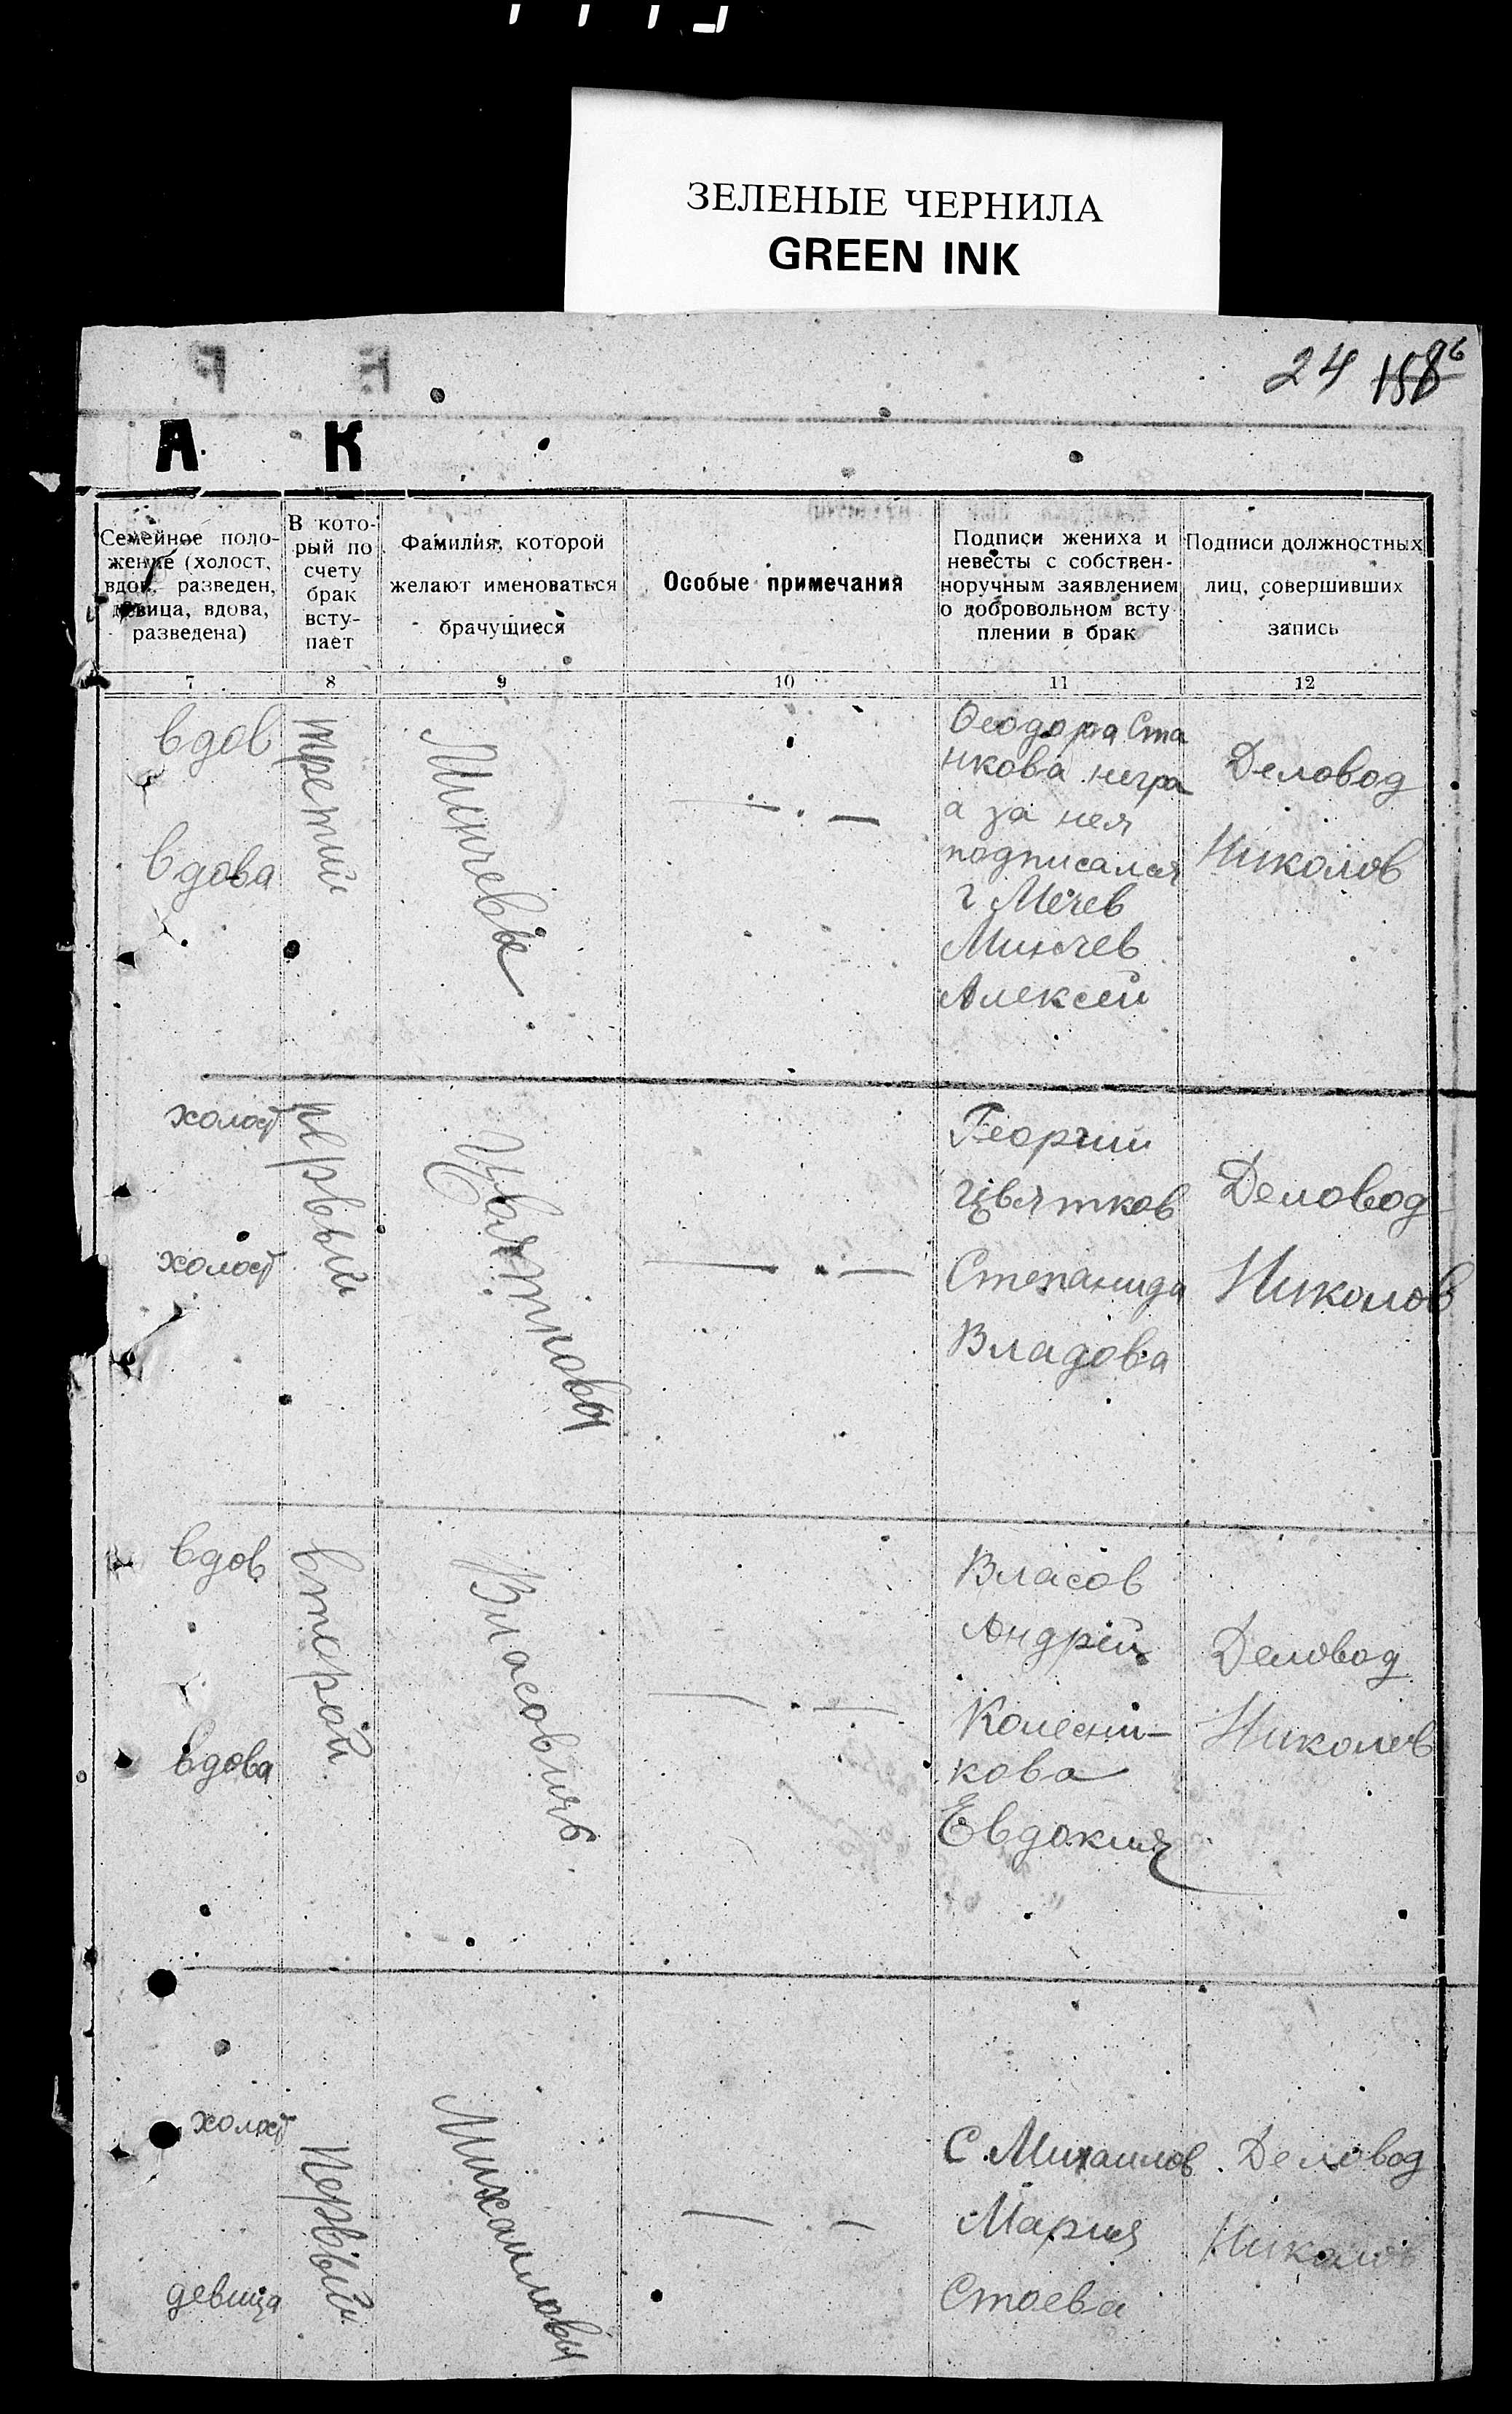 ЗЕЛЕНЫЕ ЧЕРНИЛА
GREEN INK
24
А К
Семейное поло-
жение (холост,
вдов, разведен,
девица, вдова,
разведена)
В кото-
рый по
счету
брак
всту-
пает
Фамилия, которой
желают именоваться
брачущиеся
Особые примечания
Подписи жениха и
невесты с собствен-
норучным заявлением
о добровольном всту
плении в брак
Подписи должностных
лиц, совершивших
запись
7 8 9 10 11 12
вдов
вдова
третий
Минчевы
Феодора Ста
нкова негра
а за нея
подписался
г Мечев
Минчев
Алексей
Деловод
Николов
холост
холост
первый
Цвятковы
Георгий
Цвятков
Степанида
Владова
Деловод
Николов
вдов
вдова
второй
Власовичь
Власов
Андрей
Колесни-
кова
Евдокия
Деловод
Николов
холост
девица
Первый
Михаиловы
С. Михаилов
Мария
Стоева
Деловод
Николов